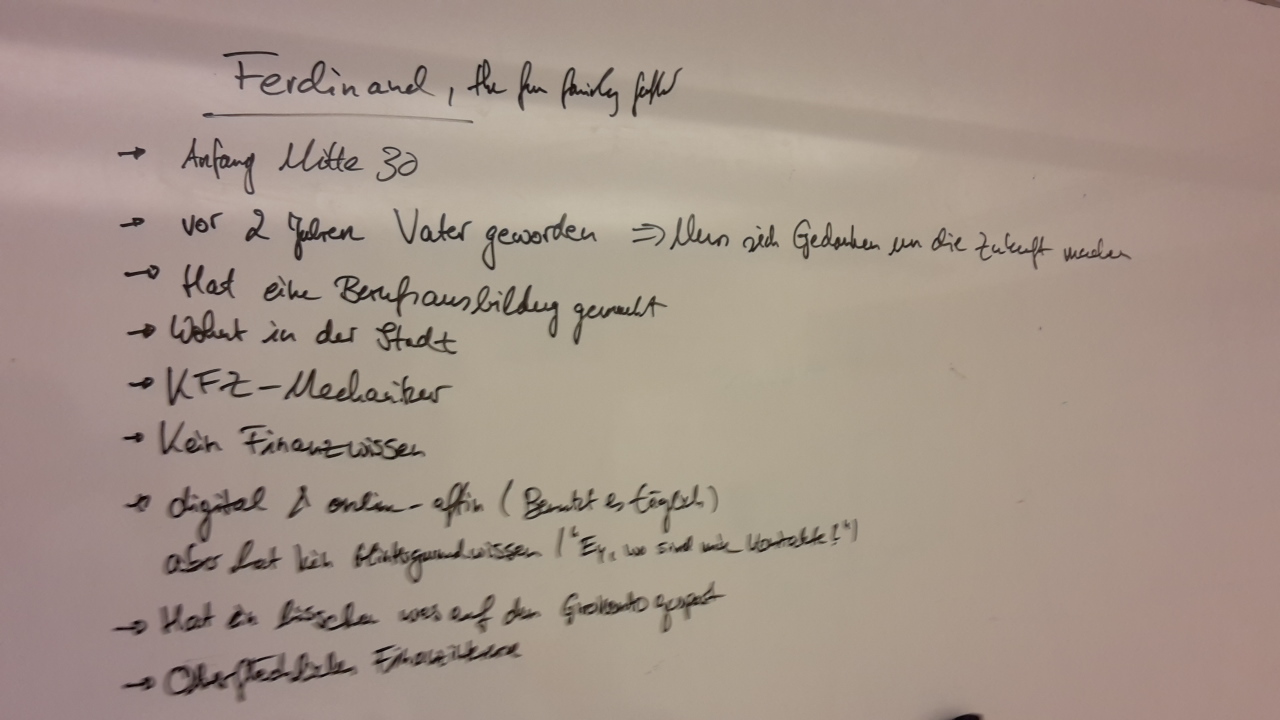 Ferdinand, the fun family father
→ Anfang Mitte 30
→ vor 2 Jahren Vater geworden ⇒ Muss sich Gedanken um die Zukunft machen
→ Hat eine Berufsausbildung gemacht
→ Wohnt in der Stadt
→ KFZ-Mechaniker
→ Kein Finanzwissen
→ digital & online-affin (Benutzt es täglich)
aber hat kein Hintergrundwissen ("Ey, wo sind meine Kontakte?")
→ Hat ein bisschen was auf dem Girokonto gespart
→ Oberflächliches